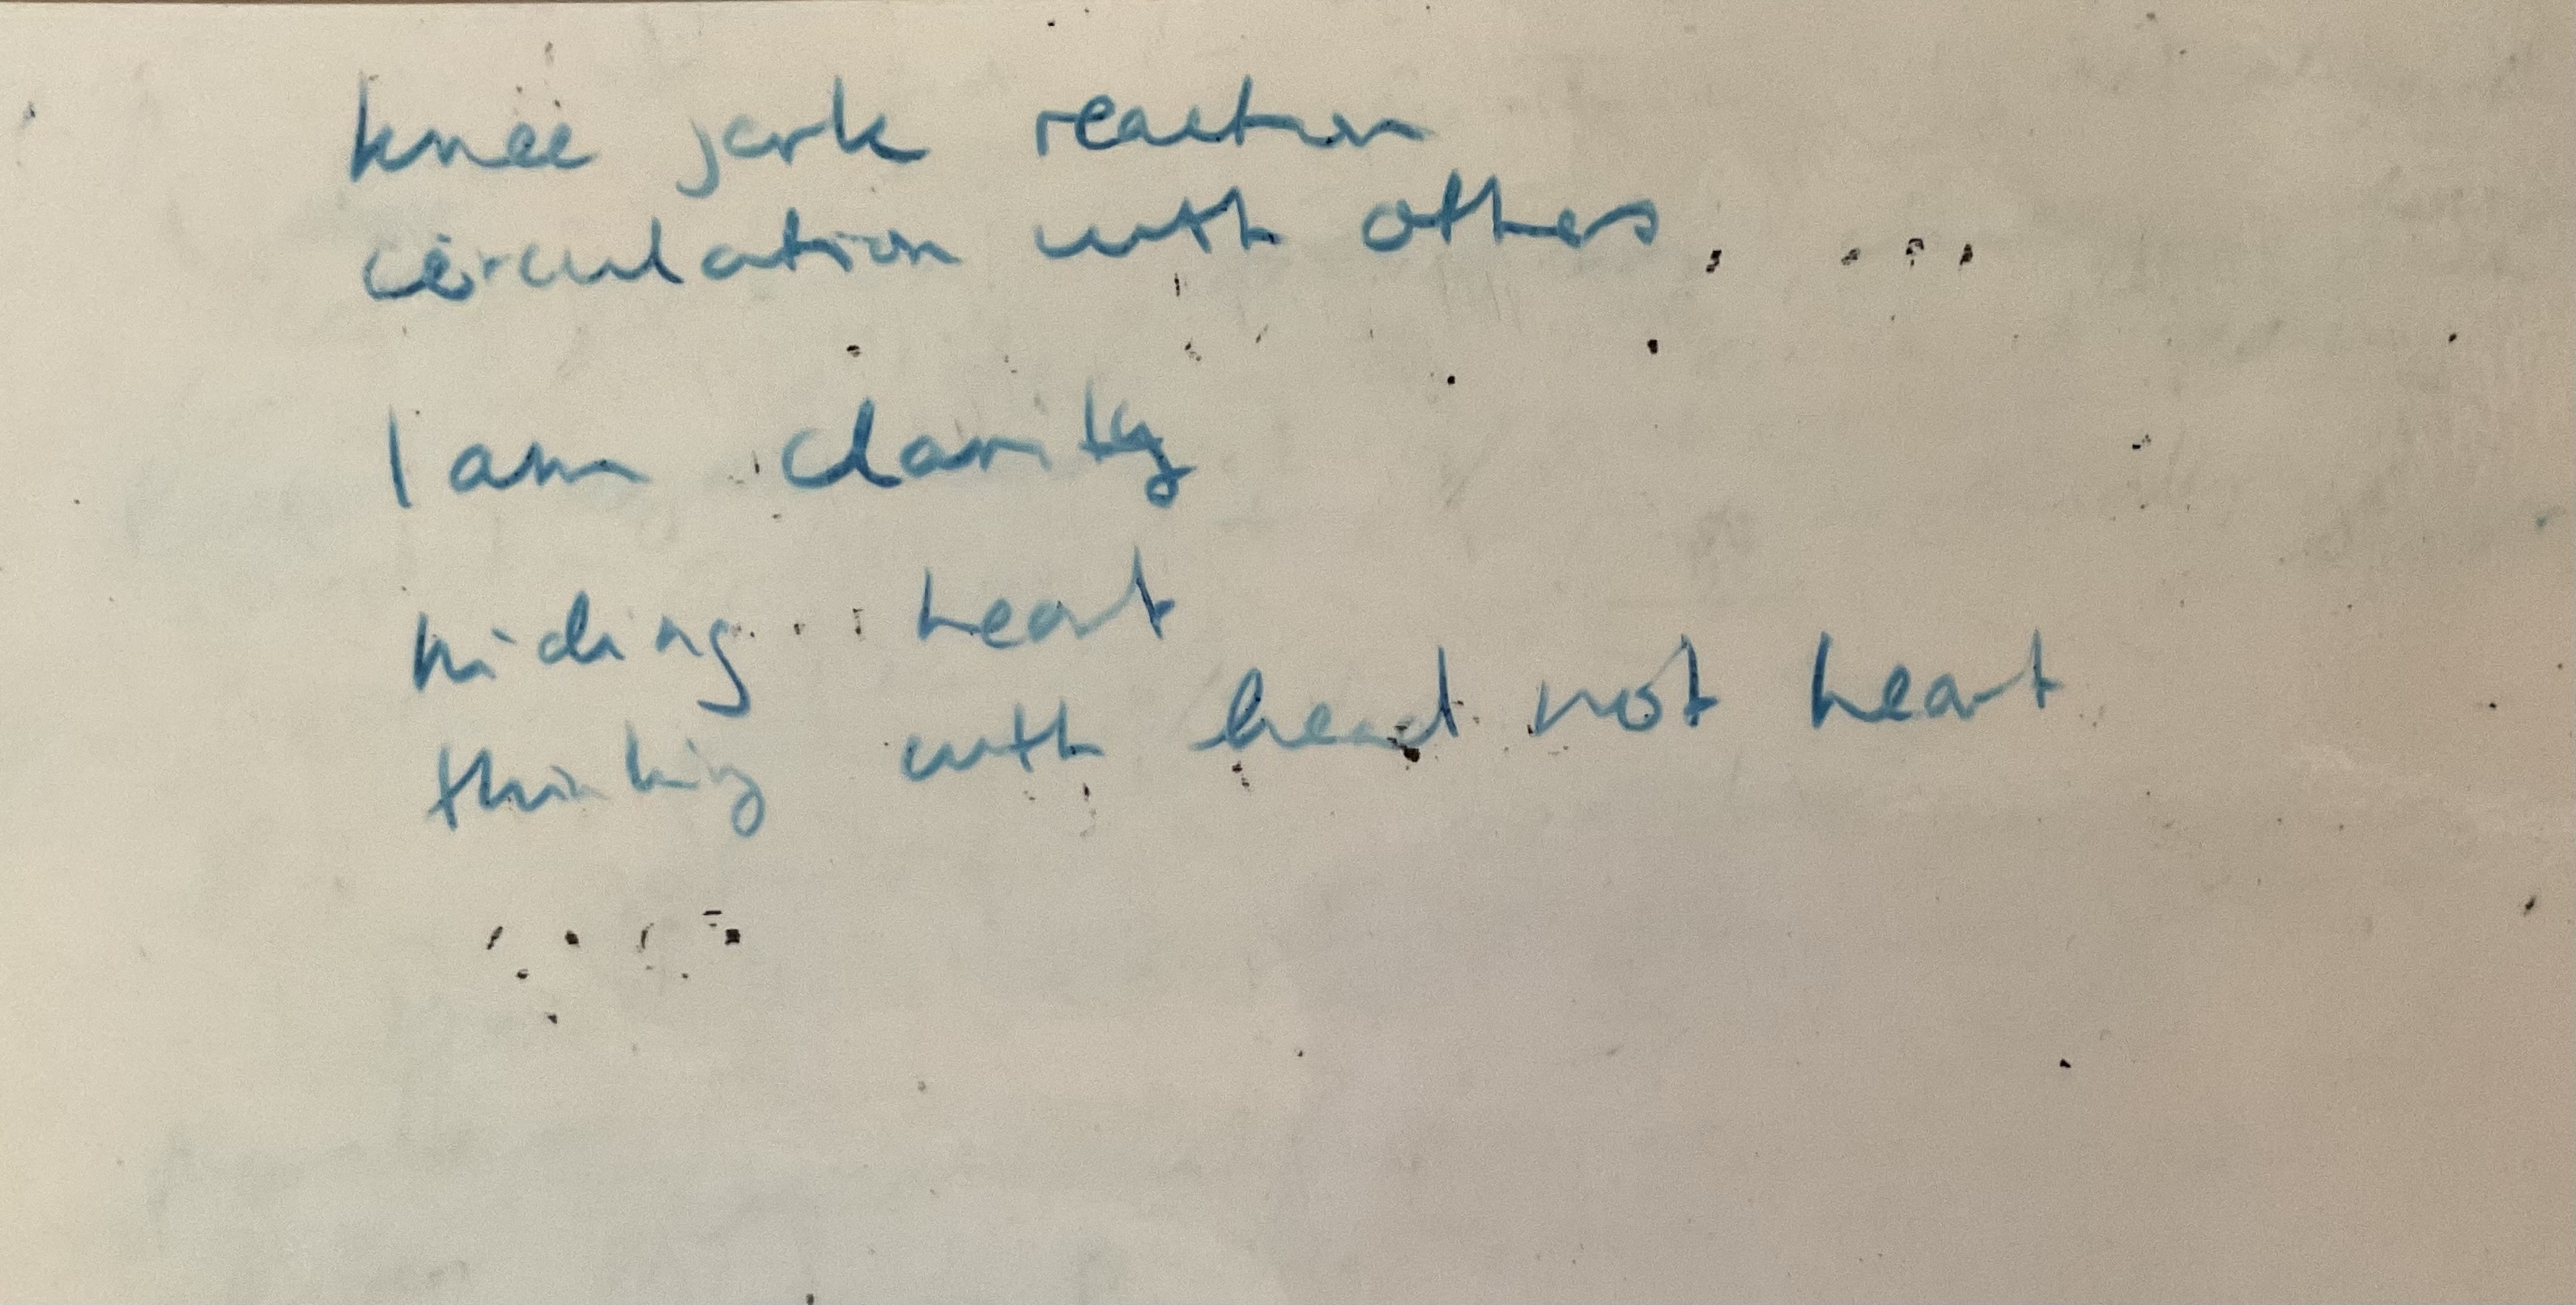 knee jerk reaction
circulation with others
I am clarity
hiding heart
thinking with head not heart